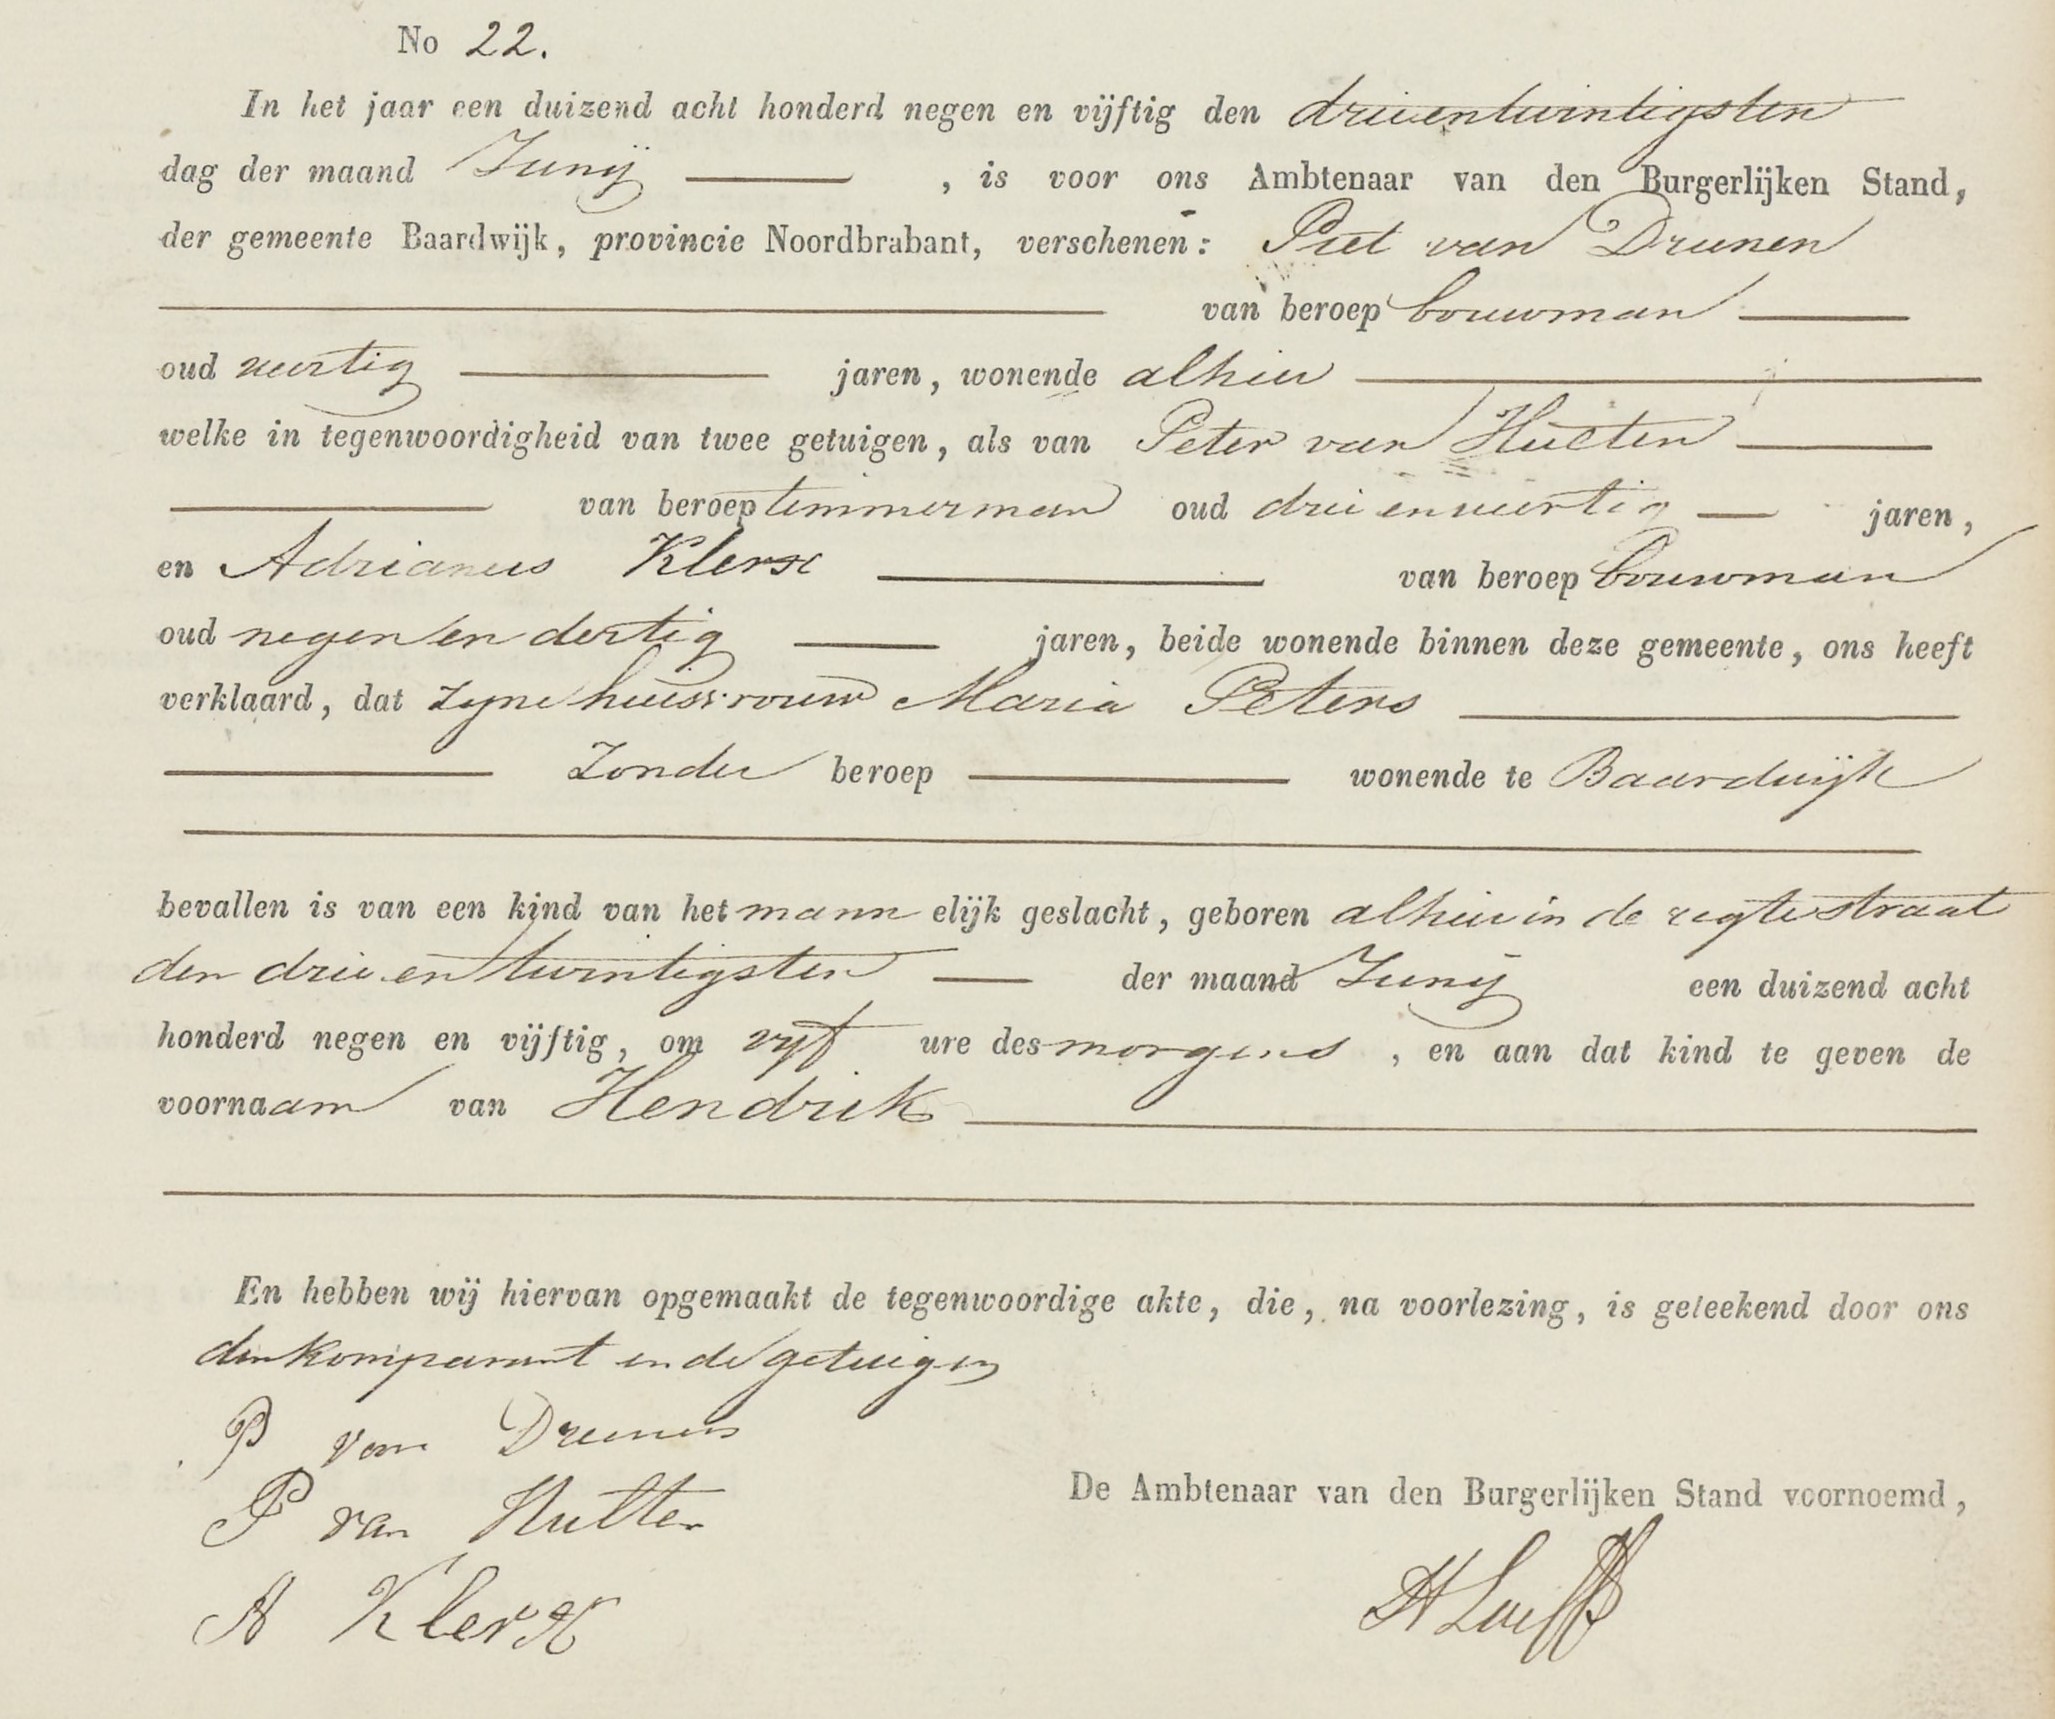 No 22.
In het jaar een duizend acht honderd negen en vijftig den drieentwintigsten
dag der maand Junij , is voor ons Ambtenaar van den Burgerlijken Stand,
der gemeente Baardwijk, provincie Noordbrabant, verschenen: Piet van Drunen
van beroep bouwman
oud veertig jaren, wonende alhier
welke in tegenwoordigheid van twee getuigen, als van Peter van Hulten
van beroep timmerman oud drie en veertig jaren,
en Adrianus Klerx van beroep bouwman
oud negen en dertig jaren, beide wonende binnen deze gemeente, ons heeft
verklaard, dat zyne huisvrouw Maria Peters
Zonder beroep wonende te Baardwijk
bevallen is van een kind van het mann elijk geslacht, geboren alhier in de regte straat
den drie en twintigsten der maand Junij een duizend acht
honderd negen en vijftig, om vyf ure des morgens , en aan dat kind te geven de
voornaam van Hendrik
En hebben wij hiervan opgemaakt de tegenwoordige akte, die, na voorlezing, is geteekend door ons
den komparant en de getuigen
P van Drunen
P van Hulten
De Ambtenaar van den Burgerlijken Stand voornoemd,
A Klerx